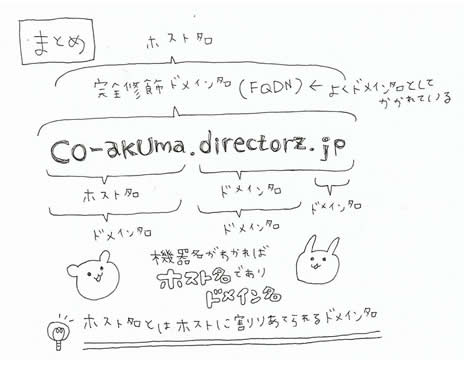 まとめ
ホスト名
完全修飾ドメイン名(FQDN) ← よくドメイン名として
かかれている
co-akuma.directorz.jp
ホスト名 ドメイン名 ドメイン名
ドメイン名 ドメイン名
機器名がわかれば
ホスト名であり
ドメイン名
ホスト名とはホストに割りあてられるドメイン名